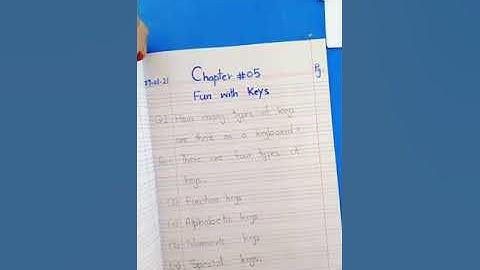 Chapter #05
Fun with Keys
Q1 How many types of keys
are there on a keyboard?
There are four types of
keys.
Function keys
Alphabetic keys
Numeric keys
Special keys.